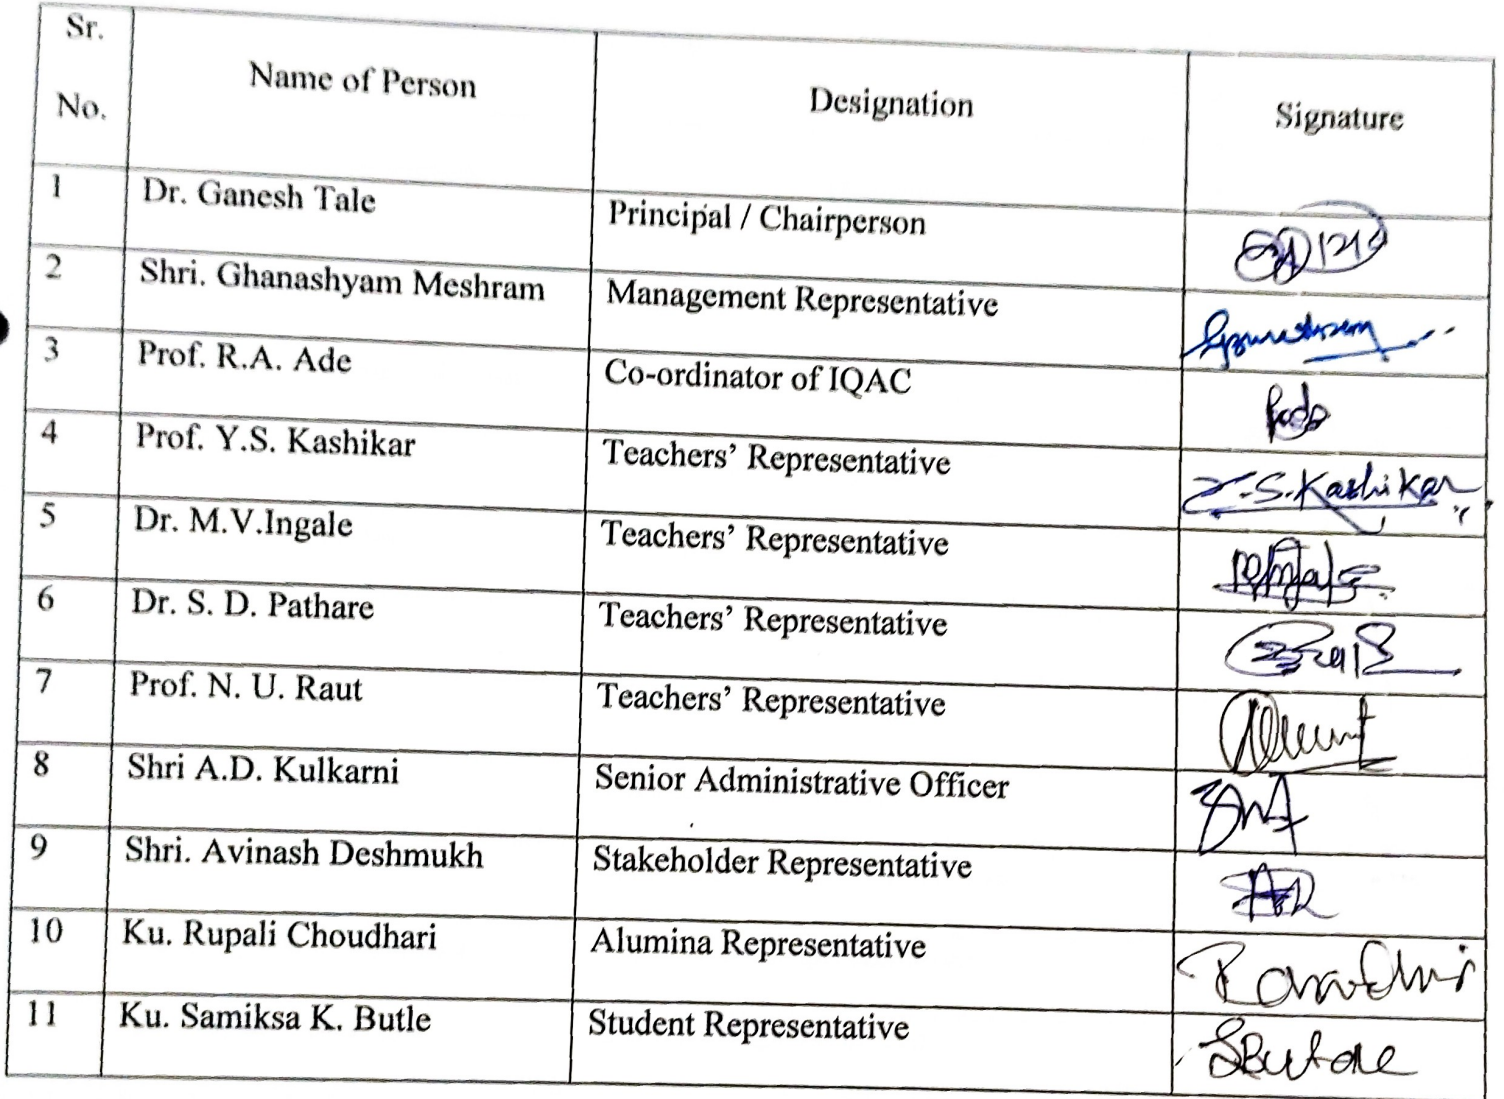 Sr. No. Name of Person Designation Signature
1 Dr. Ganesh Tale Principal / Chairperson
2 Shri. Ghanashyam Meshram Management Representative
3 Prof. R.A. Ade Co-ordinator of IQAC
4 Prof. Y.S. Kashikar Teachers' Representative Y.S.Kashikar
5 Dr. M.V.Ingale Teachers' Representative
6 Dr. S. D. Pathare Teachers' Representative
7 Prof. N. U. Raut Teachers' Representative
8 Shri A.D. Kulkarni Senior Administrative Officer
9 Shri. Avinash Deshmukh Stakeholder Representative
10 Ku. Rupali Choudhari Alumina Representative
11 Ku. Samiksa K. Butle Student Representative